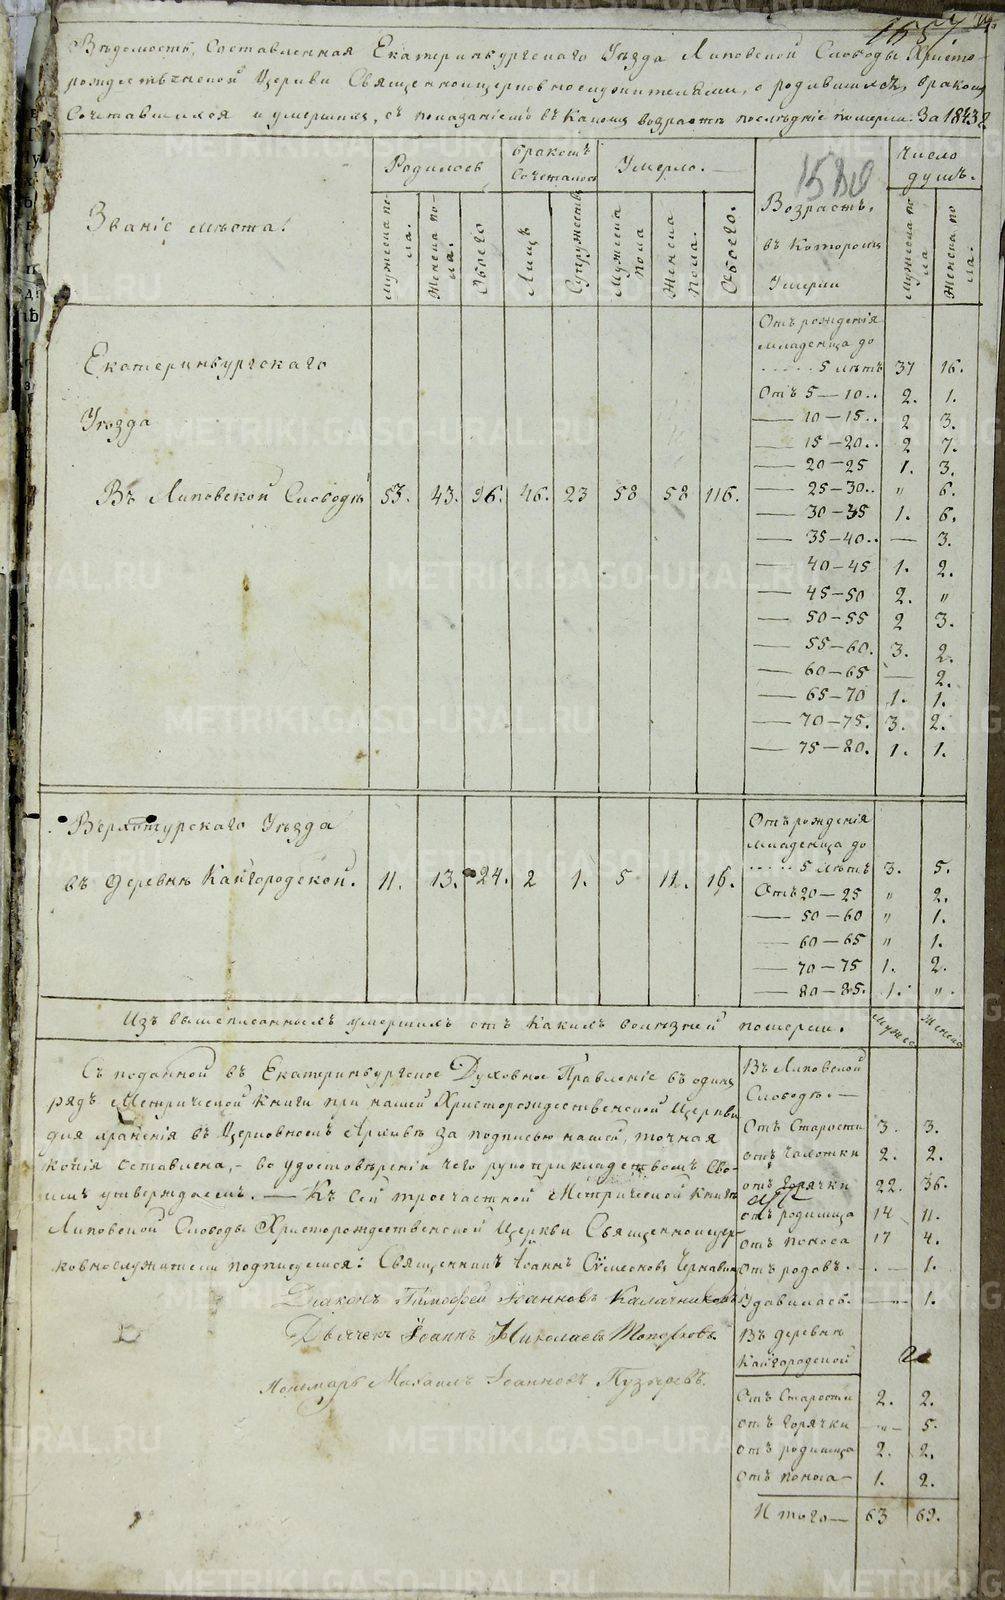 Вѣдомость, Составленная Екатеринбургскаго Уѣзда Липовской Слободы Христо-
рождественской Церкви Священноцерковнослужителями, о родившихся, бракомъ
Сочетавшихся и умершихъ, съ показаніемъ въ какомъ возрастѣ послѣдніе померли. За 1843
1580
Званіе мѣста.
Родилось
бракомъ сочеталось
Умерло.
Возрастъ, въ которомъ Умерли
Число душъ.
Мужеска пола.
Женска пола.
Обоего
Лицъ
Супружествъ
Мужеска пола
Женска пола.
Обоего.
Мужеска пола
Женска пола.
Екатеринбургскаго
Уѣзда
Въ Липовской Слободѣ 53. 43. 96. 46. 23 58 58 116.
Отъ рожденія
младенца до
5 лѣтъ 37 16.
Отъ 5—10.. 2. 1.
— 10—15.. 2 3.
— 15—20.. 2 7.
— 20—25 1. 3.
— 25—30.. „ 6.
— 30—35 1. 6.
— 35—40.. — 3.
— 40—45 1. 2.
— 45—50 2. „
— 50—55 2 3.
— 55—60. 3. 2.
— 60—65 — 2.
— 65—70 1. 1.
— 70—75. 3. 2.
— 75—80. 1. 1.
Верхотурскаго Уѣзда
въ Деревнѣ Кайгородской. 11. 13. 24. 2 1. 5 11. 16.
Отъ рожденія
младенца до
5 лѣтъ 3. 5.
Отъ 20—25 „ 2.
— 50—60 „ 1.
— 60—65 „ 1.
— 70—75 1. 2.
— 80—85. 1. „.
Изъ вышеписанныхъ умершихъ отъ какихъ болѣзней померли. Мужес Женск
Съ поданной въ Екатеринбургское Духовное Правленіе въ одинъ
рядъ Метрической книги при нашей Христорождественской Церкви
для храненія въ Церковномъ Архивѣ за подписью нашей, точная
копія оставлена, — во удостовѣреніи чего рукоприкладствомъ сво-
имъ утверждаемъ. — Къ сей троечастной Метрической книгѣ
Липовской Слободы Христорождественской Церкви Священноцер-
ковнослужители подписуемся: Священникъ Іоаннъ Сѵмеоновъ Чернавинъ
Діаконъ Тимофей Іоанновъ Калачниковъ
Дьячекъ Іоаннъ Николаевъ Топорковъ.
Пономарь Михаилъ Іоанновъ Пузыревъ.
Въ Липовской
Слободѣ. —
Отъ Старости 3. 3.
отъ чахотки 2. 2.
отъ горячки 22. 36.
отъ родимца 14 11.
отъ поноса 17 4.
отъ родовъ. — 1.
Удавилась. — 1.
Въ деревнѣ
Кайгородской
Отъ Старости 2. 2.
отъ горячки „ 5.
отъ родимца 2. 2.
отъ поноса — 1. 2.
Итого — 63 69.
METRIKI.GASO-URAL.RU